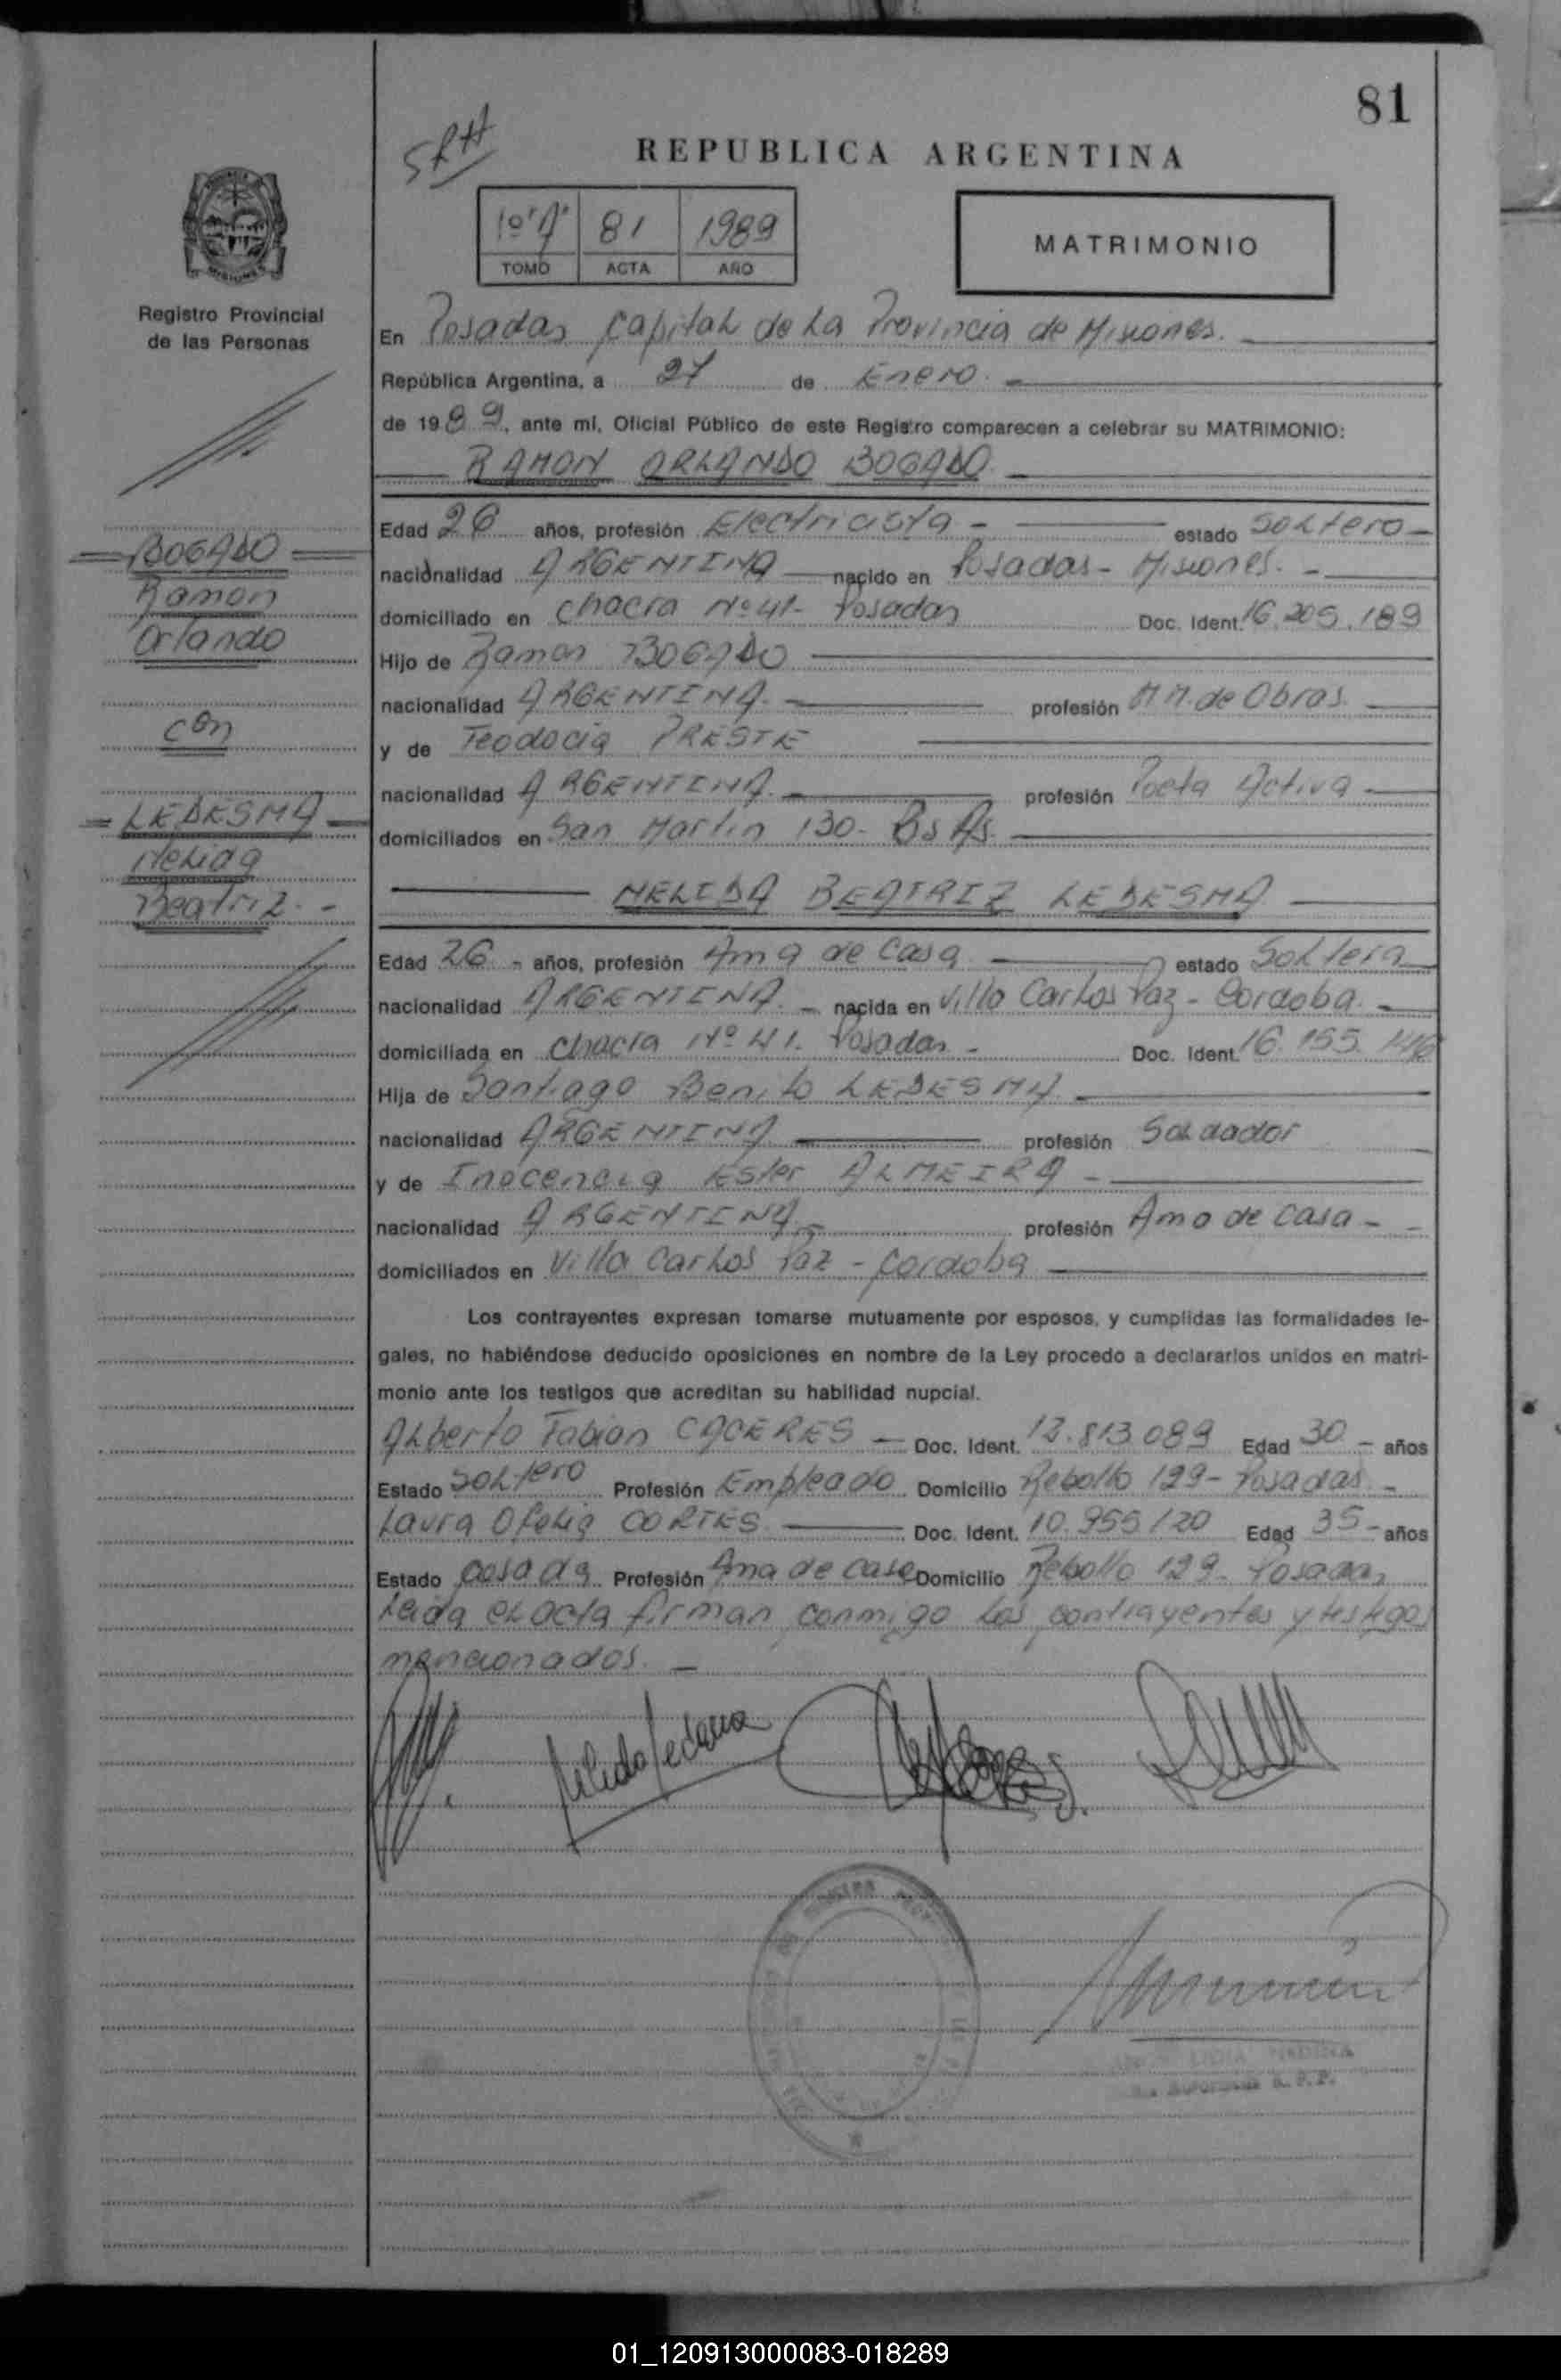 81
SRH
REPUBLICA ARGENTINA
1º "A" 81 1989
TOMO ACTA AÑO
MATRIMONIO
Registro Provincial
de las Personas
En Posadas, Capital de La Provincia de Misiones.
República Argentina, a 27 de Enero.
de 1989, ante mí, Oficial Público de este Registro comparecen a celebrar su MATRIMONIO:
RAMON ORLANDO BOGADO
BOGADO
Ramon
Orlando
con
LEDESMA
Nelida
Beatriz.-
Edad 26 años, profesión Electricista - estado Soltero -
nacionalidad ARGENTINA nacido en Posadas - Misiones. -
domiciliado en Chacra Nº 41- Posadas Doc. Ident. 16.205.189
Hijo de Ramon BOGADO
nacionalidad ARGENTINA. profesión M.M. de Obras.
y de Teodocia PRESTE
nacionalidad ARGENTINA. profesión Activa
domiciliados en San Martin 130- Bs As.
NELIDA BEATRIZ LEDESMA
Edad 26 - años, profesión Ama de Casa estado Soltera
nacionalidad ARGENTINA. - nacida en Villa Carlos Paz - Cordoba. -
domiciliada en Chacra Nº 41. Posadas - Doc. Ident. 16.155.146
Hija de Santiago Benito LEDESMA
nacionalidad ARGENTINA profesión Soldador
y de Inocencia Ester ALMEIRA -
nacionalidad ARGENTINA.- profesión Ama de Casa - -
domiciliados en Villa Carlos Paz - Cordoba
Los contrayentes expresan tomarse mutuamente por esposos, y cumplidas las formalidades le-
gales, no habiéndose deducido oposiciones en nombre de la Ley procedo a declararlos unidos en matri-
monio ante los testigos que acreditan su habilidad nupcial.
Alberto Fabian CACERES - Doc. Ident. 12.813.089 Edad 30 - años
Estado Soltero Profesión Empleado Domicilio Rebollo 129- Posadas -
Laura Ofelia CORTES Doc. Ident. 10.955.120 Edad 35 - años
Estado Casada Profesión Ama de Casa Domicilio Rebollo 129- Posadas
Leida el acta firman conmigo los contrayentes y testigos
mencionados. -
Nelida Ledesma
01_120913000083-018289